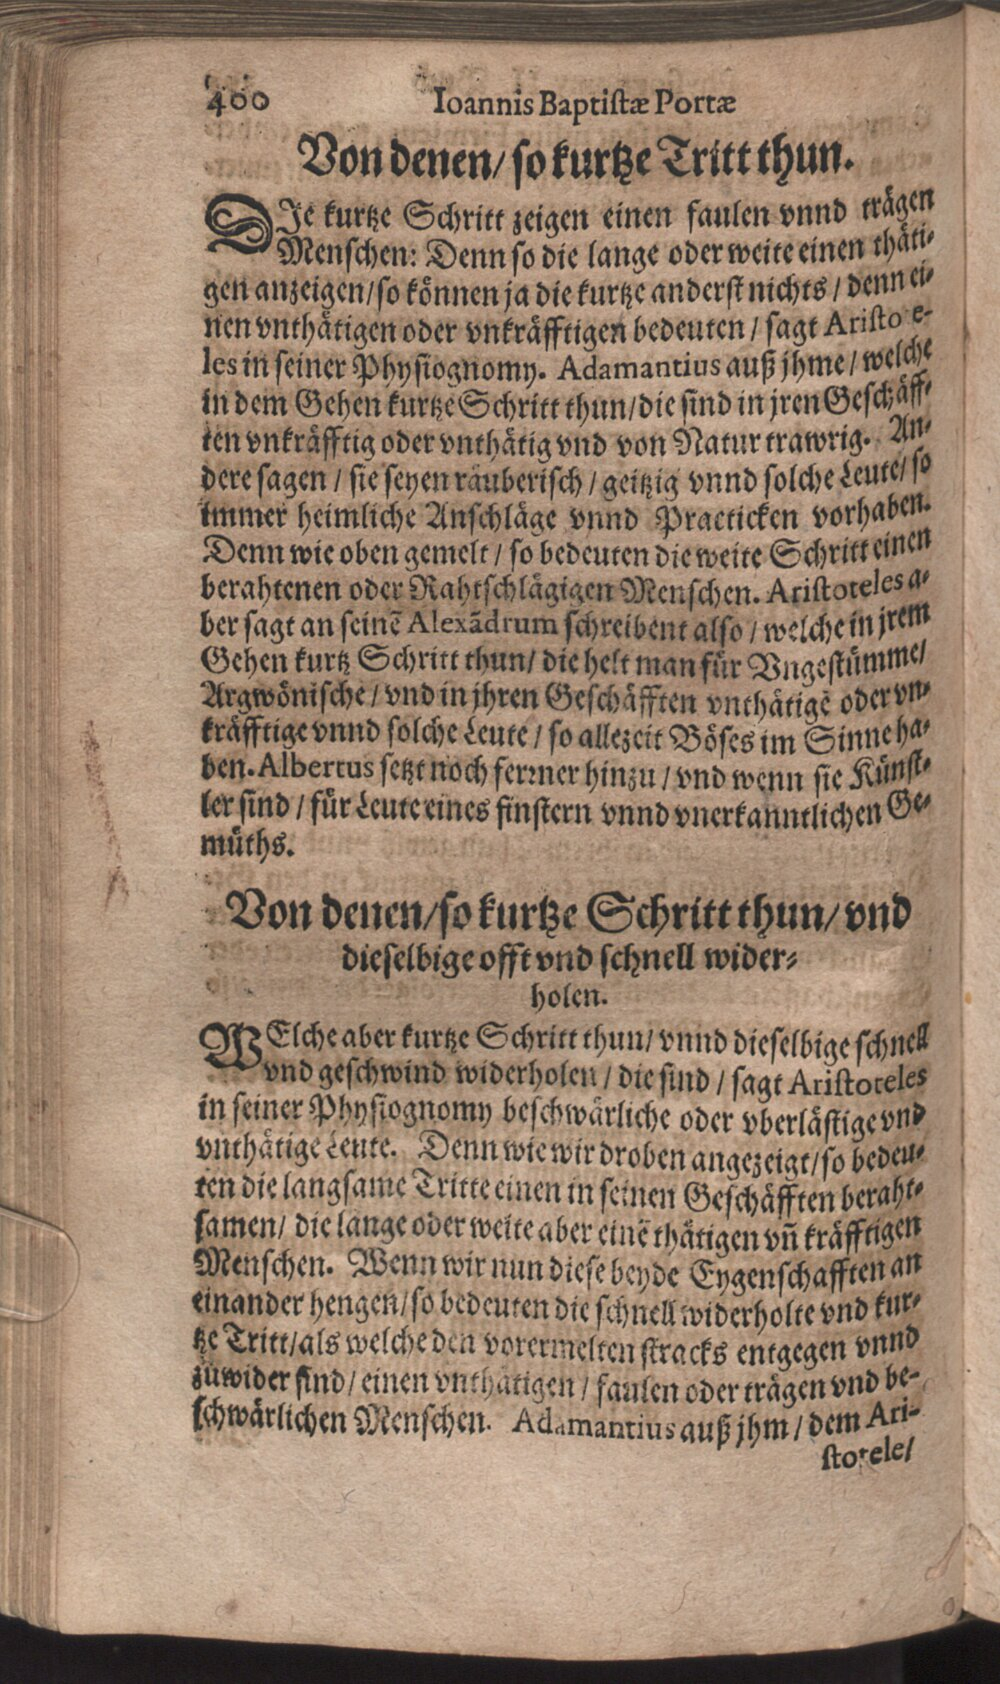 400 Ioannis Baptistæ Portæ
Von denen/ so kurtze Tritt thun.
DJe kurtze Schritt zeigen einen faulen vnnd trägen
Menschen: Denn so die lange oder weite einen thäti-
gen anzeigen/ so können ja die kurtze anderst nichts / denn ei-
nen vnthätigen oder vnkräfftigen bedeuten / sagt Aristo e-
les in seiner Physiognomy. Adamantius auß jhme / welche
in dem Gehen kurtze Schritt thun/ die sind in jren Geschäff-
ten vnkräfftig oder vnthätig vnd von Natur trawrig. An-
dere sagen / sie seyen räuberisch / geitzig vnnd solche Leute/ so
immer heimliche Anschläge vnnd Practicken vorhaben.
Denn wie oben gemelt / so bedeuten die weite Schritt einen
berahtenen oder Rahtschlägigen Menschen. Aristoteles a-
ber sagt an seinẽ Alexãdrum schreibent also / welche in jrem
Gehen kurtz Schritt thun/ die helt man für Vngestümme/
Argwönische / vnd in jhren Geschäfften vnthätige oder vn-
kräfftige vnnd solche Leute / so allezeit Böses im Sinne ha-
ben. Albertus setzt noch ferrner hinzu / vnd wenn sie Künst-
ler sind / für Leute eines finstern vnnd vnerkanntlichen Ge-
müths.
Von denen/ so kurtze Schritt thun/ vnd
dieselbige offt vnd schnell wider-
holen.
WElche aber kurtze Schritt thun/ vnnd dieselbige schnell
vnd geschwind widerholen / die sind / sagt Aristoteles
in seiner Physiognomy beschwärliche oder vberlästige vnd
vnthätige Leute. Denn wie wir droben angezeigt/ so bedeu-
ten die langsame Tritte einen in seinen Geschäfften beraht-
samen/ die lange oder weite aber einẽ thätigen vñ kräfftigen
Menschen. Wenn wir nun diese beyde Eygenschafften an
einander hengen/ so bedeuten die schnell widerholte vnd kur-
tze Tritt/ als welche den vorermelten stracks entgegen vnnd
zuwider sind/ einen vnthätigen / faulen oder trägen vnd be-
schwärlichen Menschen. Adamantius auß jhm / dem Ari-
stotele/